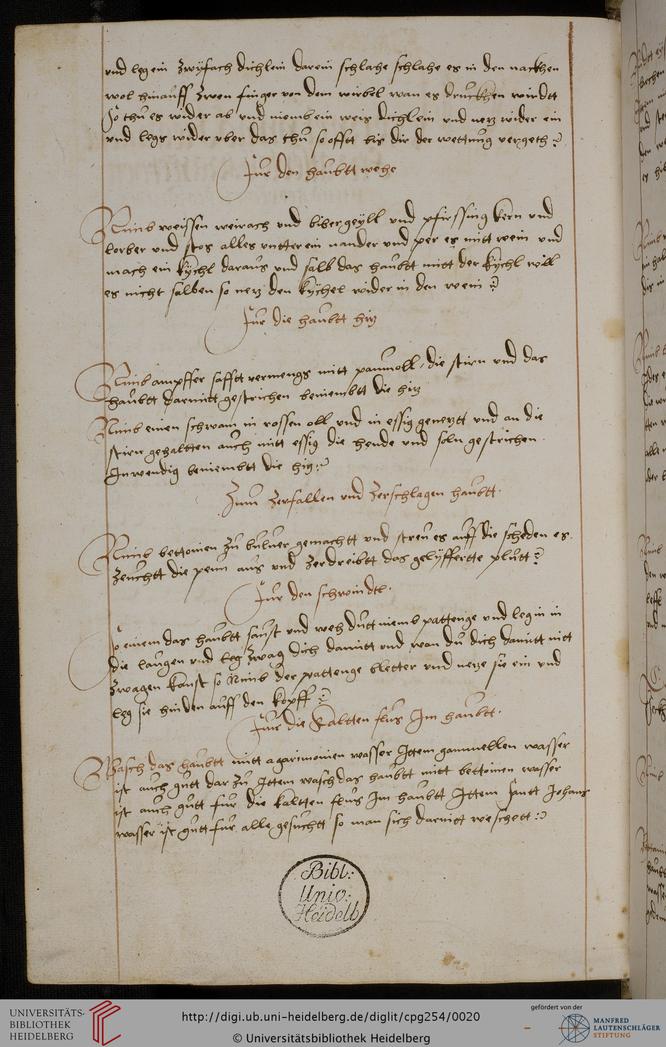 vnd leg ein zwyfach dichlein darein schlahe schlahe es in den nackhen
wol hinauff zwen finger von dem wirbel wan es druckhen wirdtt
So thu es wider ab vnd niemb ein weis dichlein vnd netz wider ein
vnd legs wider vber das thu so offtt bis dir der wettung vergeth
Fur den haubtt wehe
Nimb weissen weirach vnd bibergeyll vnd pfirssing kern vnd
lorber vnd stos alles vntterein nander vnd per es mitt wein vnd
mach ein kychl daraus vnd salb das haubtt mitt der kychl will
es nicht salben so netz den kychel wider in den wein
Fur die haubtt hitz
Nimb ampffer safftt vermengs mitt paumoll die stirn vnd das
haubtt darmitt gestrichen beniembtt die hitz
Nimb einen schwam in rossen oll vnd in essig genetztt vnd an die
stirn gehaltten auch mitt essig die hende vnd soln gestrichen
Inwendig beniembtt die hitz
Zum zerfallen vnd zerschlagen haubtt
Nimb bettonien zu buluer gemachtt vnd streu es auff die scheden es
zeuchtt die penn aus vnd zerdreibtt das gelyffertte plutt
Fur den schwindtl
So einem das haubtt saust vnd weh dutt niemb pattonge vnd leg in in
die laugen vnd zwag dich damitt vnd wan du dich damitt nitt
zwagen kanst so Nimb der pattonge bletter vnd netze sie ein vnd
leg sie hinden auff den kopff
Fur die kaltten flus Im haubtt
Wasch das haubtt mitt agarimonien wasser Ittem gamuellen wasser
ist auch gutt dar zu Ittem wasch das haubtt mitt bettonien wasser
ist auch gutt fur die kaltten flus Im haubtt Ittem santt Johans
wasser ist gutt fur alle gesuchtt so man sich damitt weschett
Bibl:
Univ:
Heidelb
UNIVERSITÄTS-
BIBLIOTHEK
HEIDELBERG
http://digi.ub.uni-heidelberg.de/diglit/cpg254/0020
© Universitätsbibliothek Heidelberg
gefördert von der
MANFRED
LAUTENSCHLÄGER
STIFTUNG